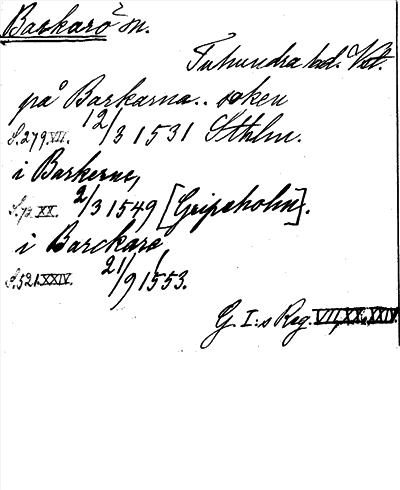 Barkarö sn.
Tuhundra hd. Vstl.
på Barkarna.. soken
S.279.VII. 12/3 1531 Sthlm.
i Barkerne,
S.70.XX. 2/3 1549 [Gripsholm].
i Barckarö,
S.521.XXIV. 21/9 1553.
G. I:s Reg. VII, XX, XXIV